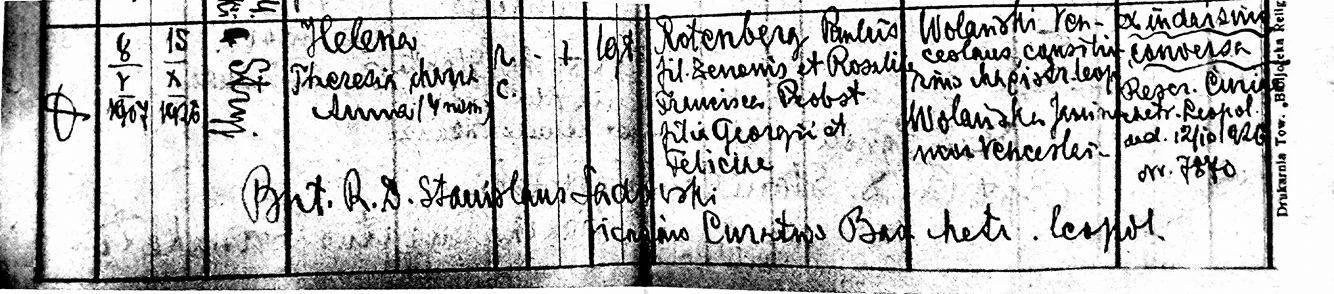 8 15
V X
1907 1926
Stryj.
Helena
Theresia
Anna (4 nom)
r. c.
- 1
Rotenberg Paulus
fil. Zenonis et Rosaliae
Francisca Probst
filia Georgii et
Feliciae
Wolański Ven-
ceslaus, consilia-
rius Magistr. Leop
Wolańska Janina
uxor Venceslai
ex iudaismo
conversa
Rescr. Curiae
metr. Leopol.
ded. 12/10 1926
nr. 7870
Bapt. R. D. Stanislaus Sadowski
Curatus Bas. Metr. Leopol.
Drukarnia Tow. „Bibljoteka Relig